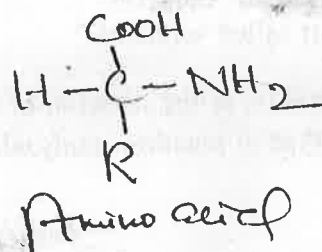 COOH
H-C-NH2
R
Amino acid